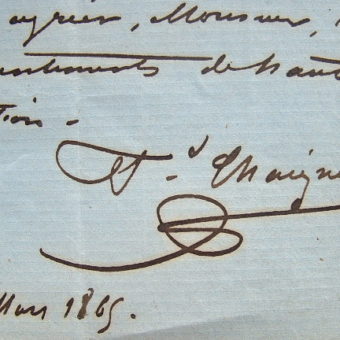 agréer, Monsieur,
sentiments de haute
tion.
Mars 1865.